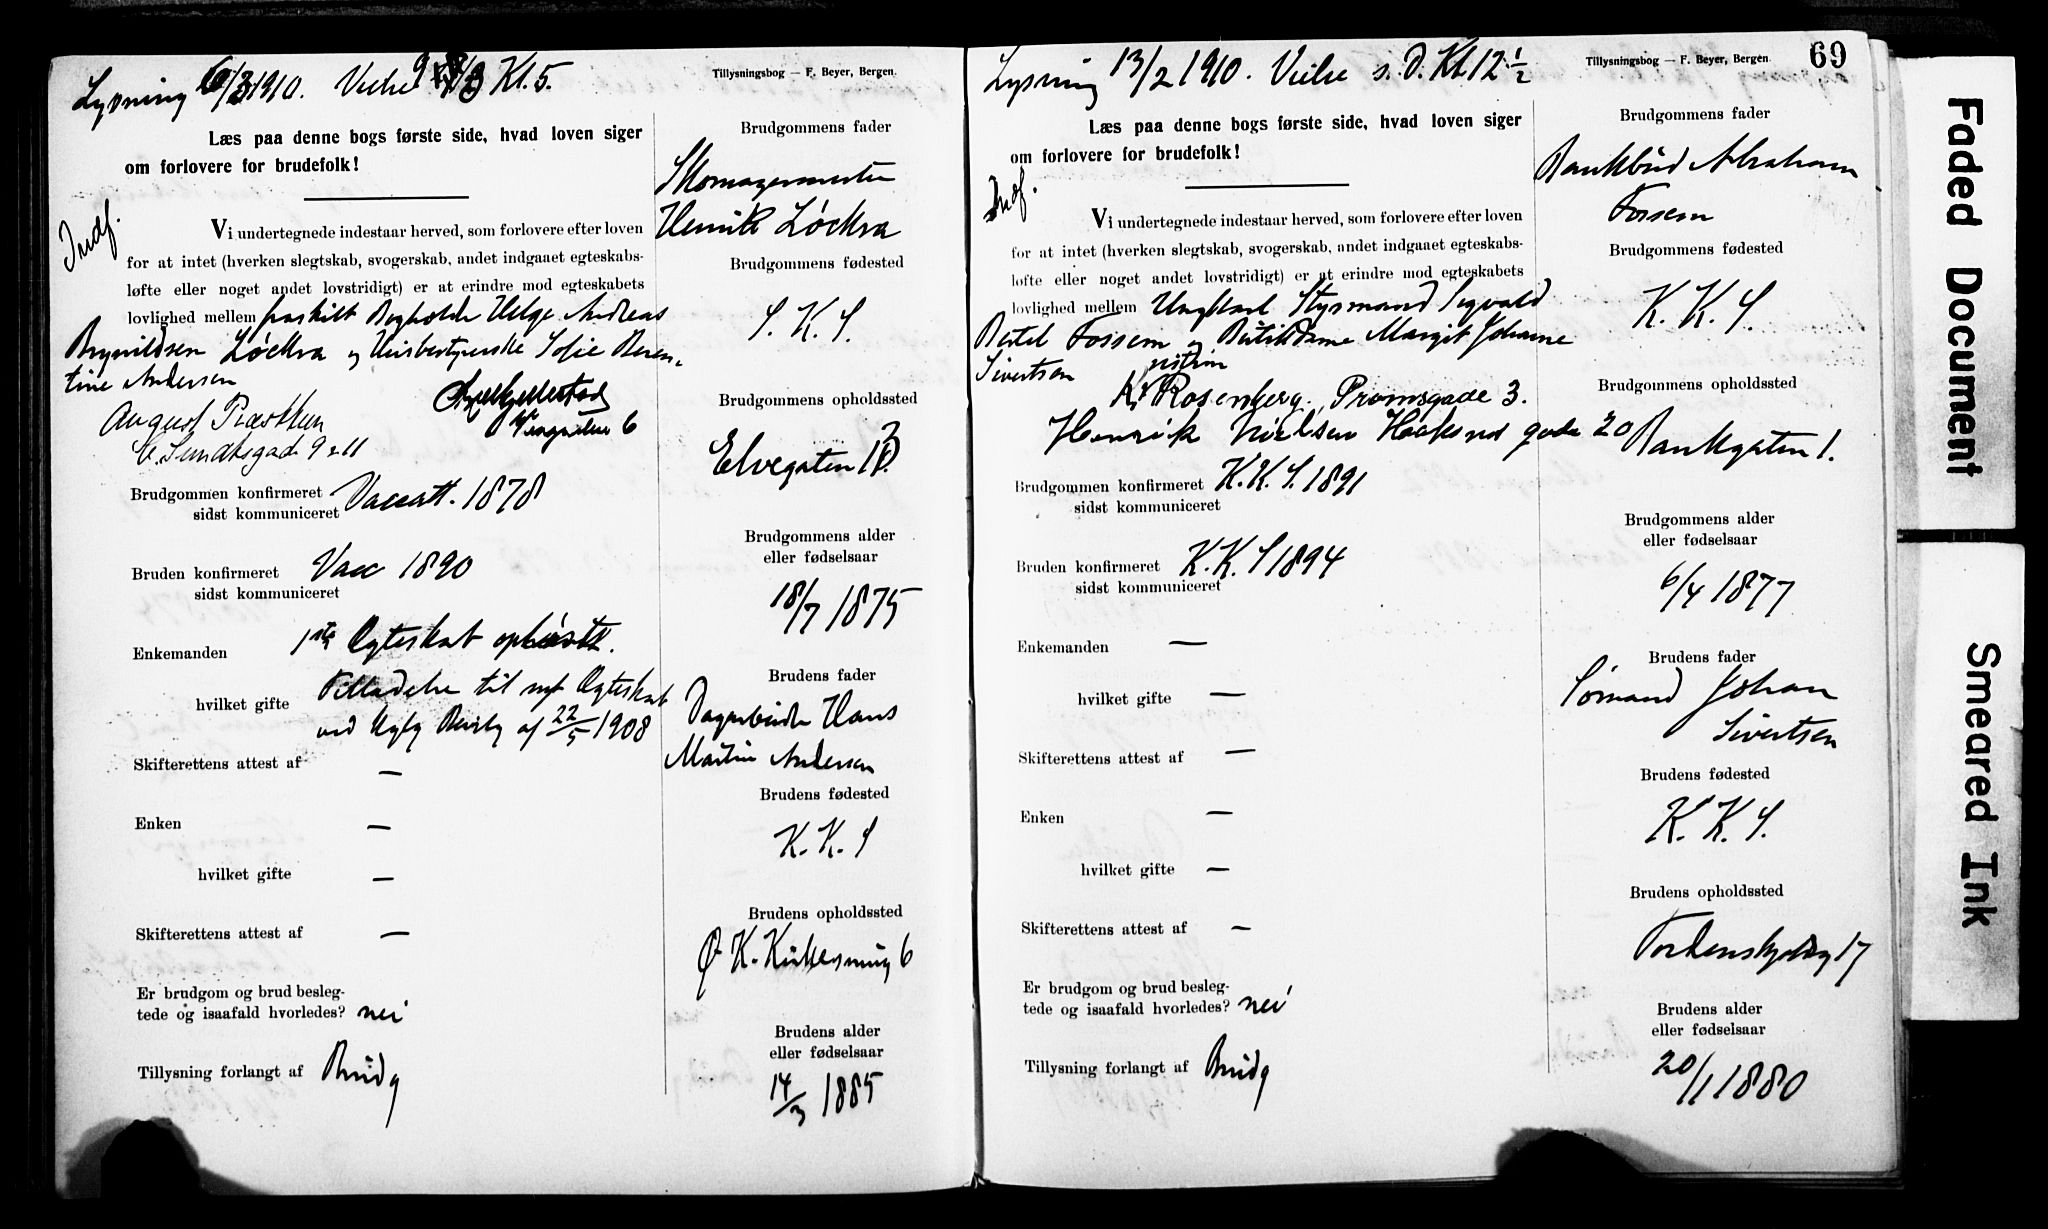 Lysning 6/3 1910. Vielse 9/3 Kl. 5.
Tillysningsbog — F. Beyer, Bergen.
Læs paa denne bogs første side, hvad loven siger
om forlovere for brudefolk!
Indf.
Vi undertegnede indestaar herved, som forlovere efter loven
for at intet (hverken slegtskab, svogerskab, andet indgaaet egteskabs-
løfte eller noget andet lovstridigt) er at erindre mod egteskabets
lovlighed mellem fraskilt Bogholder Helge Andreas
Brynildsen Løckra og Husbestyrerske Sofie Beren-
tine Andersen
August Præsthun
C. Sundtsgade 9 & 11
6
Brudgommen konfirmeret Vaccatt. 1878
sidst kommuniceret
Bruden konfirmeret Vacc 1890
sidst kommuniceret
Enkemanden 1ste Ægteskab ophævet.
hvilket gifte Tilladelse til nyt Ægteskab
ved af 22/5 1908
Skifterettens attest af —
Enken —
hvilket gifte —
Skifterettens attest af —
Er brudgom og brud besleg-
tede og isaafald hvorledes? nei
Tillysning forlangt af Brudg
Brudgommens fader
Skomagermester
Henrik Løckra
Brudgommens fødested
S. K. S.
Brudgommens opholdssted
Elvegaten
Brudgommens alder
eller fødselsaar
18/7 1875
Brudens fader
Dagarbeider Hans
Martin Andersen
Brudens fødested
K. K. S
Brudens opholdssted
Ø K. Kirkesmug 6
Brudens alder
eller fødselsaar
14/3 1885
Lysning 13/2 1910. Vielse s. D. Kl 12 1/2
Tillysningsbog — F. Beyer, Bergen.
69
Læs paa denne bogs første side, hvad loven siger
om forlovere for brudefolk!
Indf.
Vi undertegnede indestaar herved, som forlovere efter loven
for at intet (hverken slegtskab, svogerskab, andet indgaaet egteskabs-
løfte eller noget andet lovstridigt) er at erindre mod egteskabets
lovlighed mellem Ungkarl Styrmand Sigvald
Bertel Fossem og Butikdame Margit Johanne
Sivertsen
Kr Rosenberg. Promsgade 3.
Henrik Nielsen gade 20
Brudgommen konfirmeret K. K. S. 1891
sidst kommuniceret
Bruden konfirmeret K. K. S 1894
sidst kommuniceret
Enkemanden —
hvilket gifte —
Skifterettens attest af —
Enken —
hvilket gifte —
Skifterettens attest af —
Er brudgom og brud besleg-
tede og isaafald hvorledes? nei
Tillysning forlangt af Brudg
Brudgommens fader
Bankbud Abraham
Fossem
Brudgommens fødested
K. K. S.
Brudgommens opholdssted
Bankgaten 1.
Brudgommens alder
eller fødselsaar
6/4 1877
Brudens fader
Sømand Johan
Sivertsen
Brudens fødested
K. K. S.
Brudens opholdssted
Tordenskjoldsg 17
Brudens alder
eller fødselsaar
20/1 1880
Faded Document
Smeared Ink